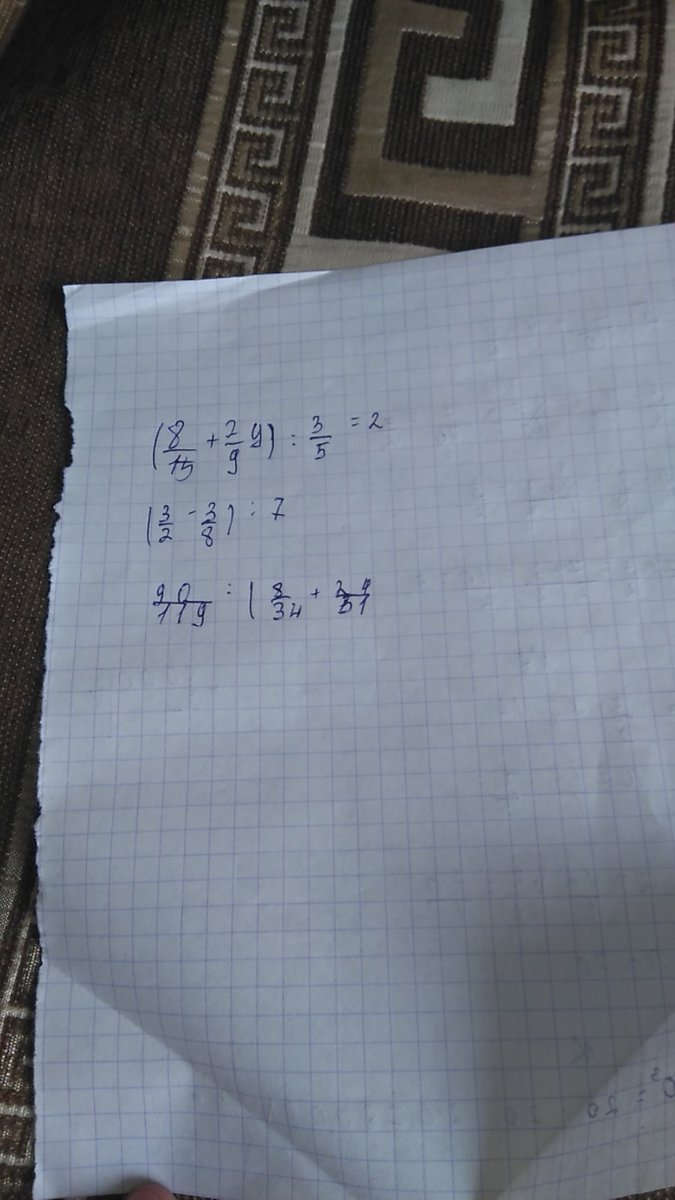 (8/15 + 7/9 y) : 3/5 = 2
(3/2 - 3/8) : 7
90/119 : ( 8/34 +